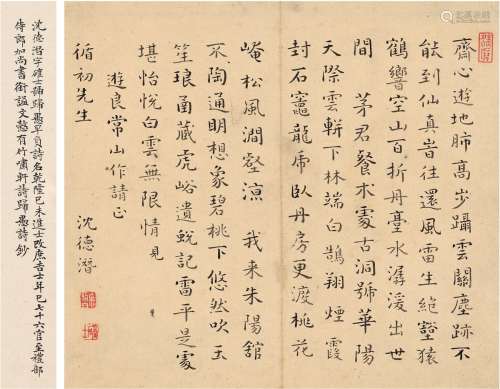 齊心遊地肺高步躡雲關塵跡不
能到仙真昔往還風雷生絶壑猿
鶴響空山百折丹臺水潺湲出世
間 茅君餐朮處古洞號華陽
天際雲軿下林端白鵠翔煙霞
封石竈龍虎臥丹房更渡桃花
崦松風澗壑涼 我来朱陽舘
不陶通明想象碧桃下悠然吹玉
笙琅函藏虎峪遺蛻記雷平是處
堪怡悅白雲無限情 見
遊良常山作請正
循初先生
沈德潛
沈德潛字確士號歸愚早負詩名乾隆己未進士改庶吉士年已七十六官至禮部
侍郎加尚書銜謚文慤有竹嘯軒詩歸愚詩鈔